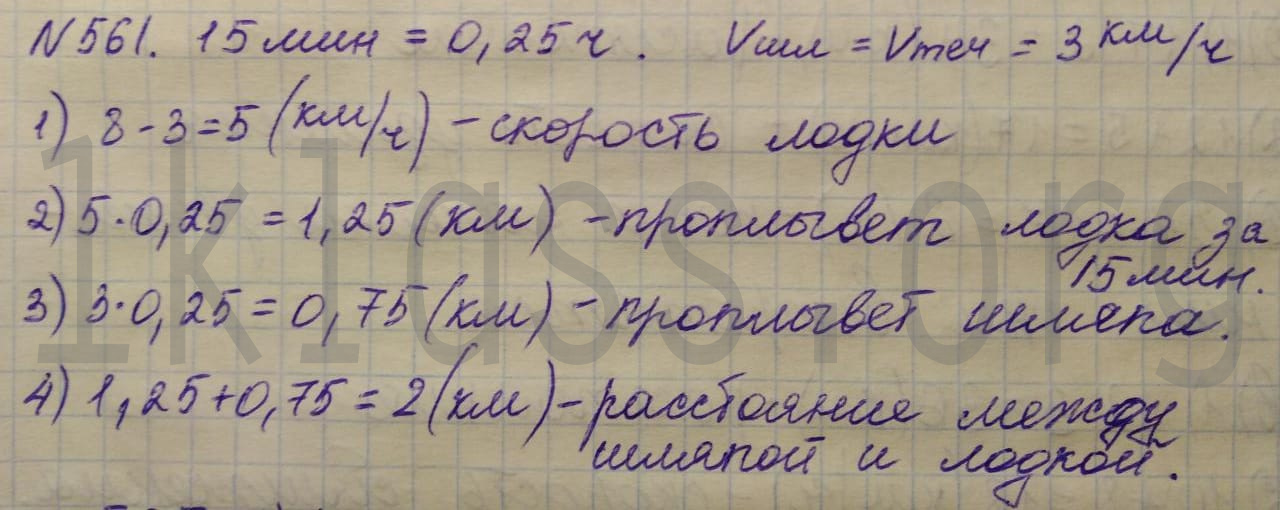 N561. 15 мин = 0,25 ч. Vшл = Vтеч = 3 км/ч
1) 8 - 3 = 5 (км/ч) - скорость лодки
2) 5 · 0,25 = 1,25 (км) - проплывет лодка за
15 мин.
3) 3 · 0,25 = 0,75 (км) - проплывет шляпа.
4) 1,25 + 0,75 = 2 (км) - расстояние между
шляпой и лодкой.
1klass.org